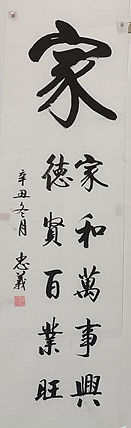 家
家和萬事興
德賢百業旺
辛丑冬月
忠義